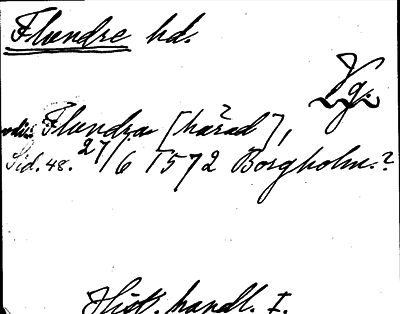 Flundre hd.
Vg.
Flundra [härad],
Sid. 48. 27/6 1572 Borgholm.?
Hist. handl. I.